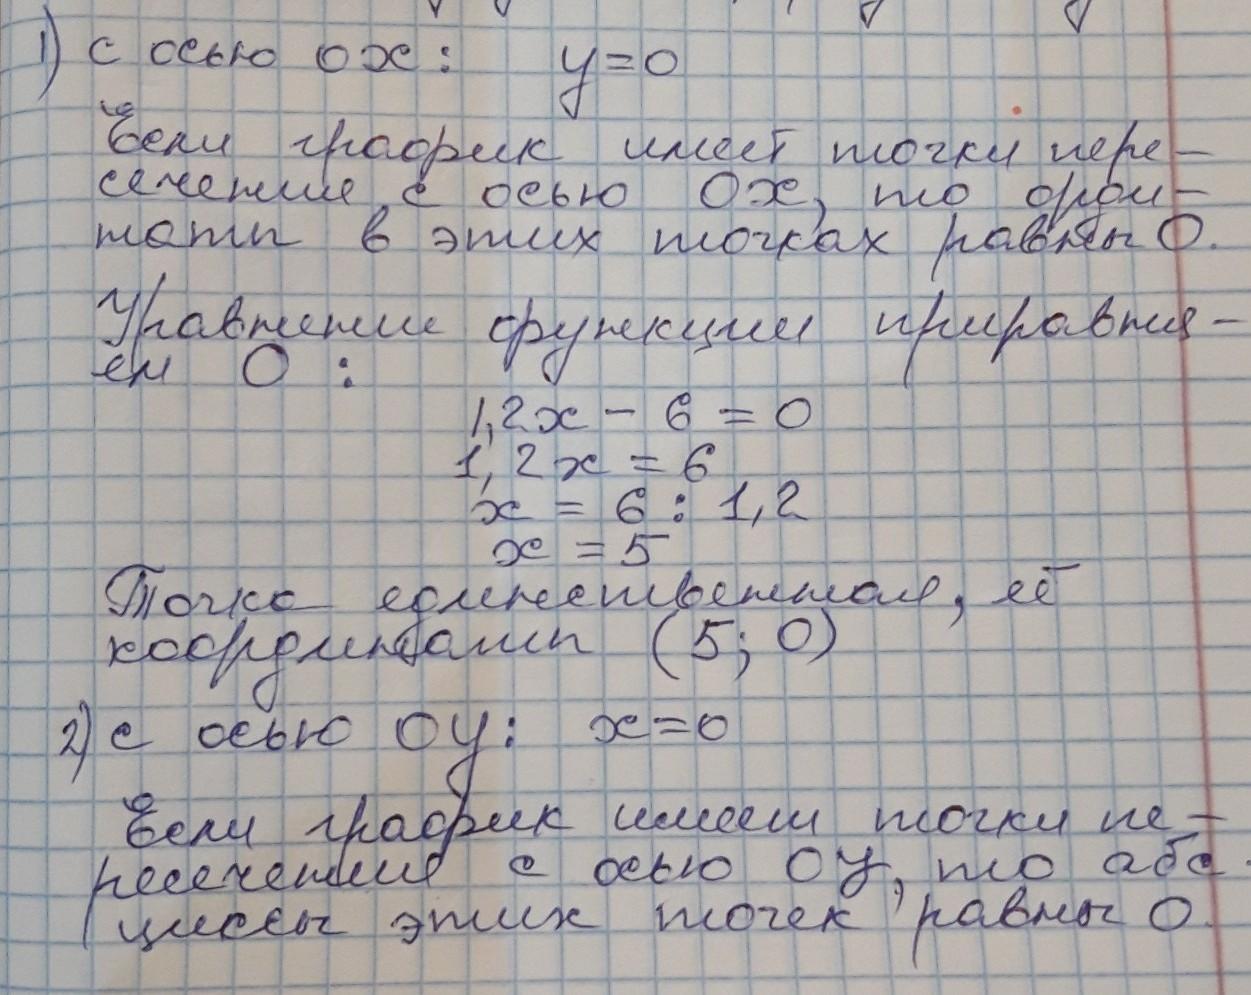 1) с осью ОХ: y=0
Если график имеет точки пере-
сечения с осью ОХ, то орди-
наты в этих точках равны 0.
Уравнение функции приравня-
ем 0 :
1,2x - 6 = 0
1,2x = 6
x = 6 : 1,2
x = 5
Точка единственная, её
координаты (5; 0)
2) с осью ОУ: x=0
Если график имеет точки пе-
ресечения с осью ОУ, то абс
циссы этих точек равны 0.